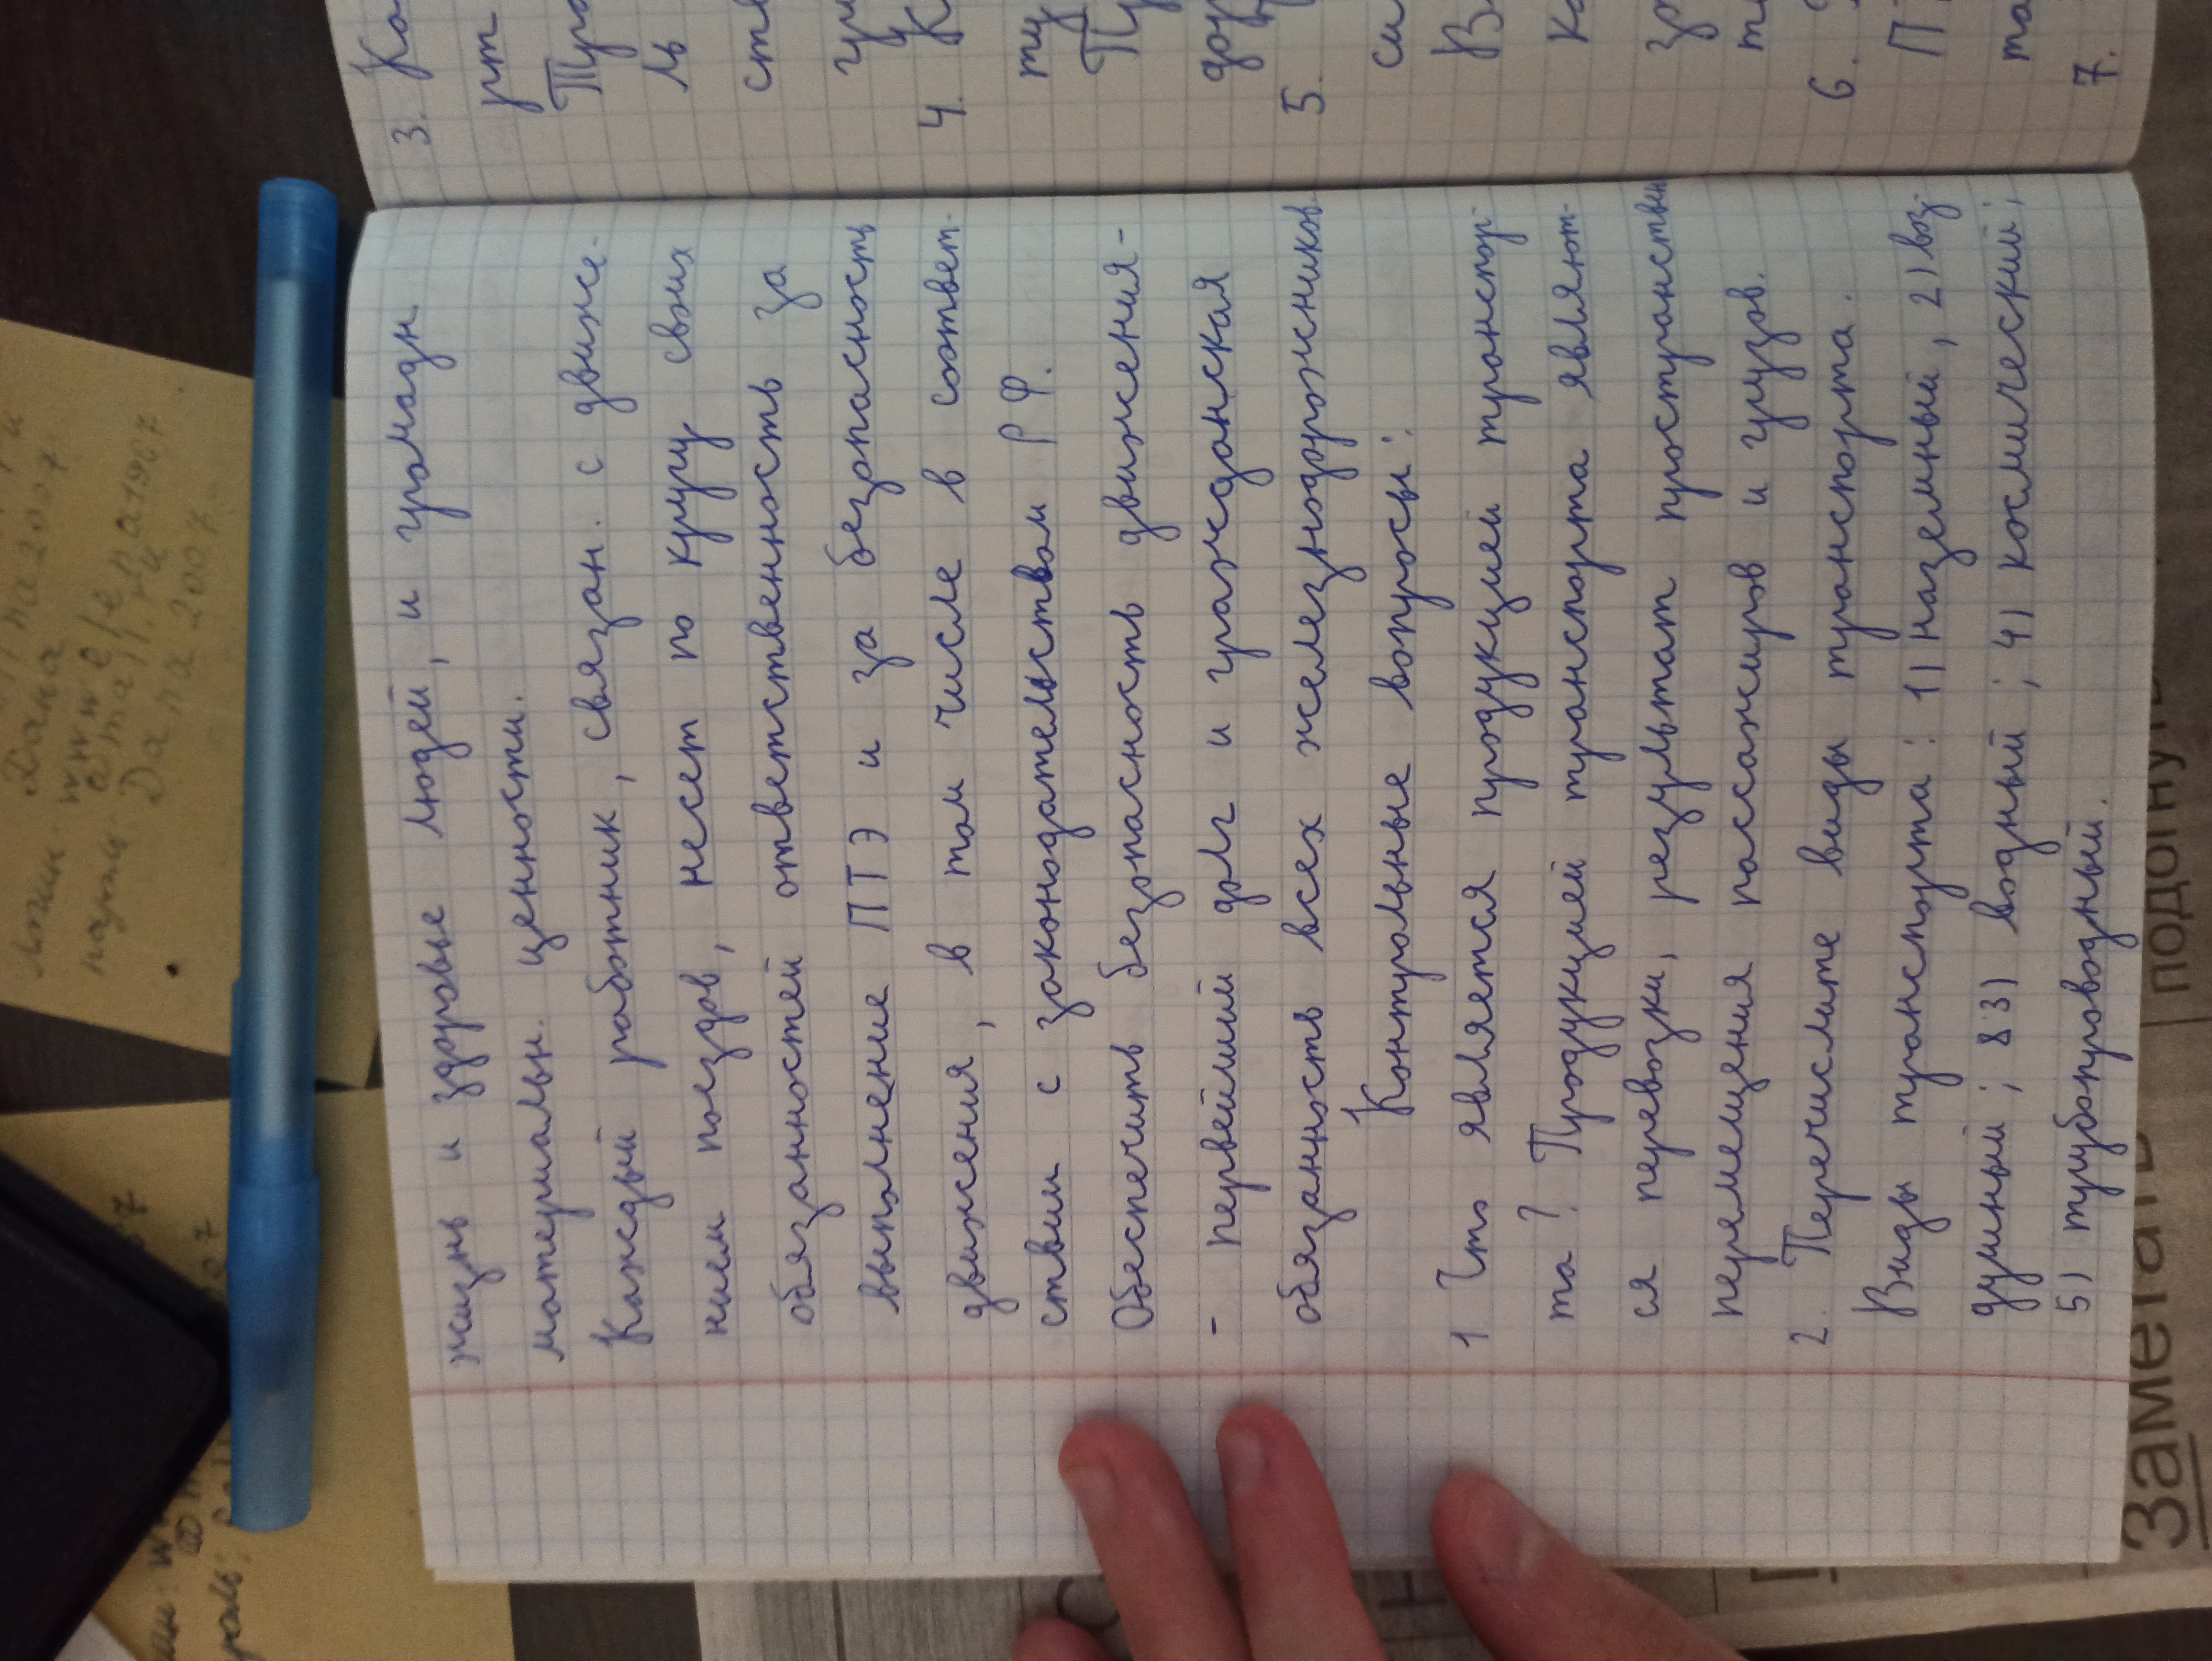 жизнь и здоровье людей, и громадн.
материальн. ценности.
Каждый работник, связан. с движе-
нием поездов, несет по кругу своих
обязанностей ответственность за
выполнение ПТЭ и за безопасность
движения, в том числе в соответ-
ствии с законодательством РФ.
Обеспечить безопасность движения-
- первейший долг и гражданская
обязанность всех железнодорожников.
Контрольные вопросы:
1. Что является продукцией транспор-
та? Продукцией транспорта являют-
ся перевозки, результат пространствен
перемещения пассажиров и грузов.
2. Перечислите виды транспорта.
Виды транспорта: 1) наземный, 2) воз-
душный; 3) водный; 4) космический;
5) трубопроводный.
3. Ко
рт
ль
сте
4. К
ту
дор
5.
си
В
К
зр
6.
П
та
7.
Дана
Дата 2007
Заметать
подогнуть